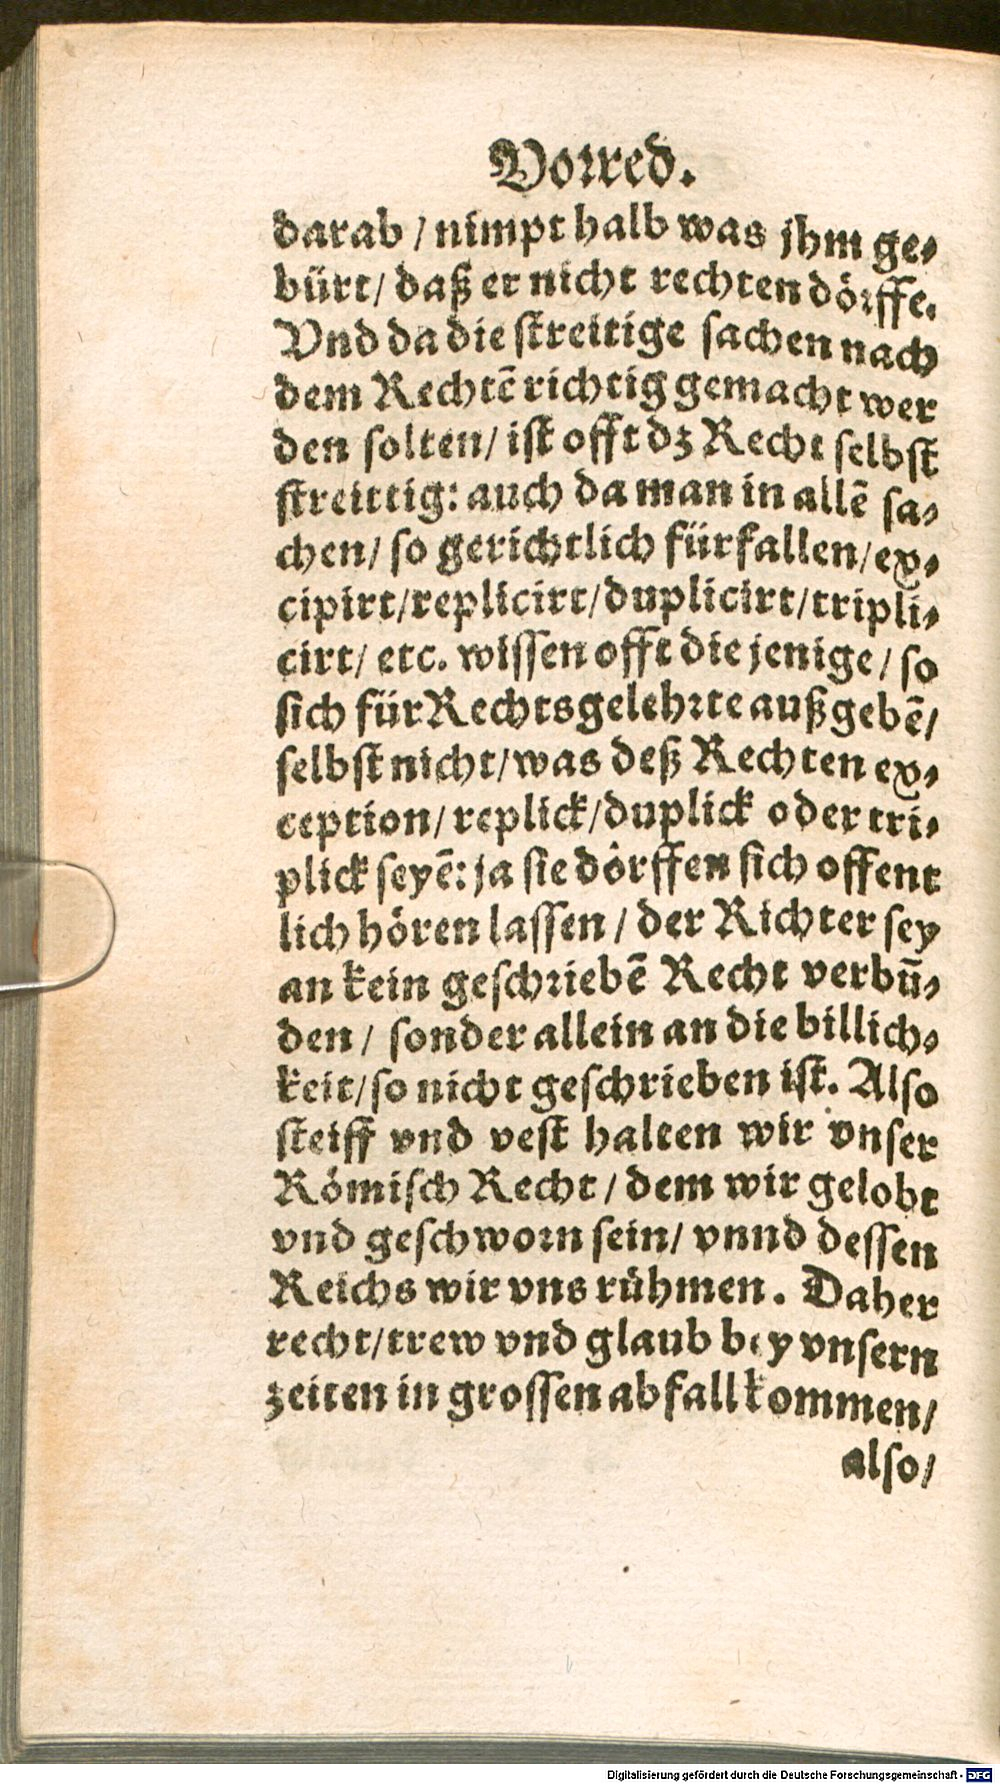 Vorred.
darab / nimpt halb was jhm ge⸗
bürt/ daß er nicht rechten dörffe.
Vnd da die streitige sachen nach
dem Rechtē richtig gemacht wer
den solten/ ist offt dz Recht selbst
streittig: auch da man in allē sa⸗
chen/ so gerichtlich fürfallen/ex⸗
cipirt/replicirt/duplicirt/tripli⸗
cirt/ etc. wissen offt die jenige/ so
sich für Rechtsgelehrte außgebē/
selbst nicht/was deß Rechten ex⸗
ception/ replick/duplick oder tri⸗
plick seyē: ja sie dörffen sich offent
lich hören lassen / der Richter sey
an kein geschriebē Recht verbū⸗
den/ sonder allein an die billich⸗
keit/so nicht geschrieben ist. Also
steiff vnd vest halten wir vnser
Römisch Recht/ dem wir gelobt
vnd geschworn sein/ vnnd dessen
Reichs wir vns rühmen. Daher
recht/trew vnd glaub bey vnsern
zeiten in grossen abfall kommen/
also/
Digitalisierung gefördert durch die Deutsche Forschungsgemeinschaft - DFG